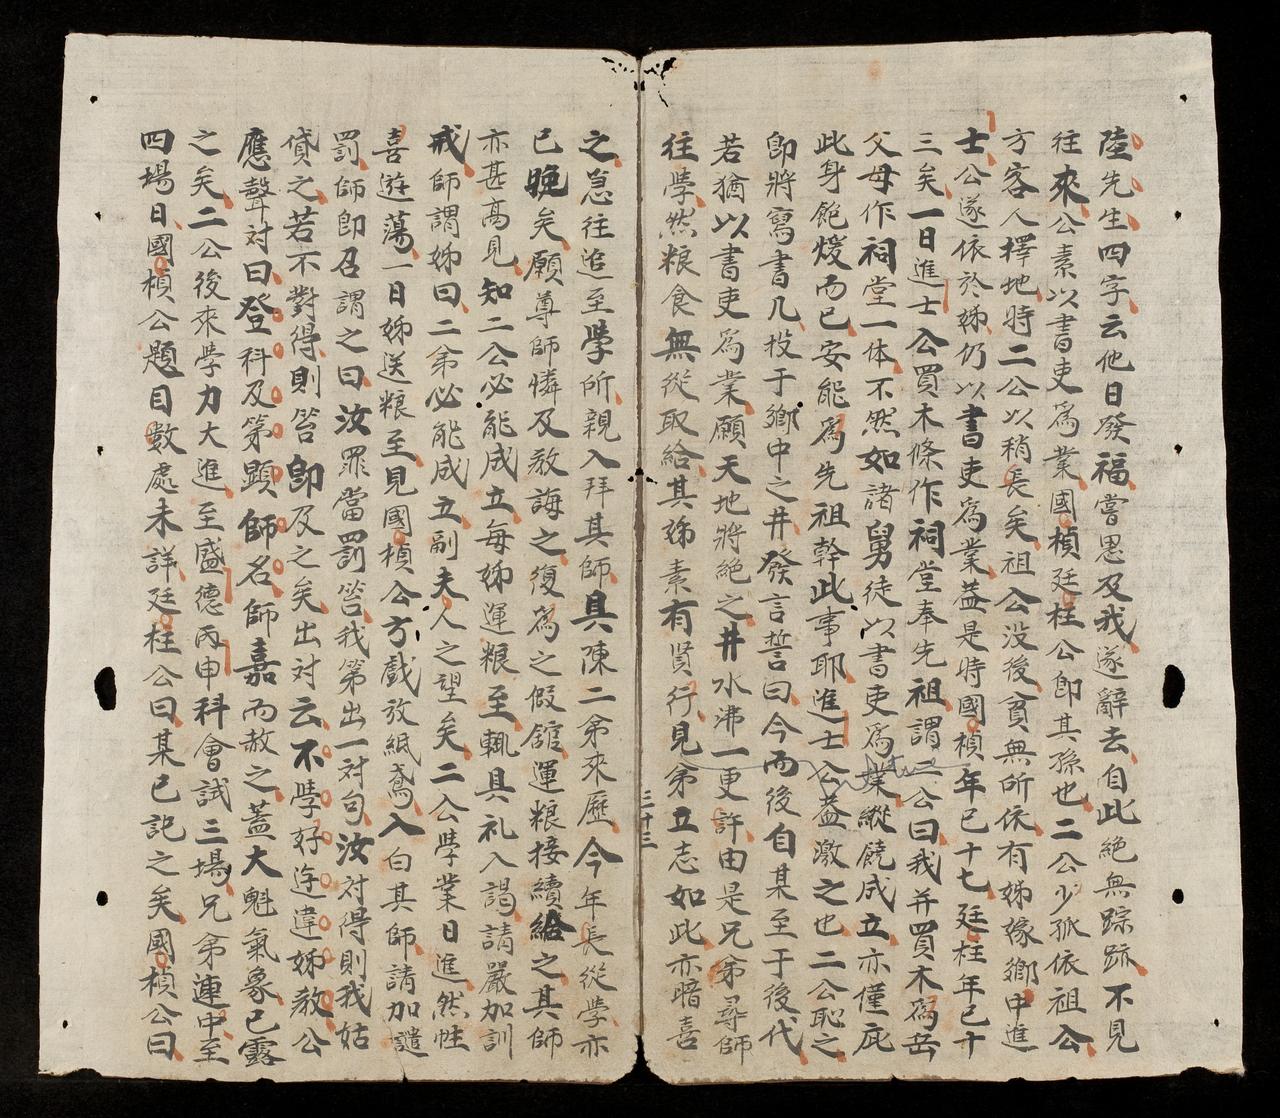 陸先生四字云他日發福嘗思及我遂辭去自此絶無踪跡不見
往來公素以書吏爲業國楨廷柱公卽其孫也二公少孤依祖公
方客人擇地時二公以稍長矣祖公没後貧無所依有姊嫁鄉中進
士公遂依於姊仍以書吏爲業葢是時國楨年已十七廷柱年已十
三矣一日進士公買木條作祠堂奉先祖謂二公曰我并買木爲岳
父母作祠堂一体不然如諸舅徒以書吏爲業縱饒成立亦僅庇
此身飽煖而已安能爲先祖幹此事耶進士公葢激之也二公恥之
卽將寫書几投于鄉中之井發言誓曰今而後自某至于後代
若猶以書吏爲業願天地將絶之井水沸一更許由是兄弟尋師
往學然粮食無從取給其姊素有賢行見弟立志如此亦暗喜
三十三
之急往追至學所親入拜其師具陳二弟來歷今年長從學亦
已晚矣願尊師憐及教誨之復爲之假舘運粮接續給之其師
亦甚高見知二公必能成立每姊運粮至輒具礼入謁請嚴加訓
戒師謂姊曰二弟必能成立副夫人之望矣二公學業日進然性
喜遊蕩一日姊送粮至見國楨公方戲放紙鳶入白其師請加譴
罰師卽召謂之曰汝罪當罰笞我第出一対句汝対得則我姑
貸之若不對得則笞卽及之矣出対云不學好迕違姊教公
應聲対曰登科及第顕師名師嘉而赦之蓋大魁氣象已露
之矣二公後來學力大進至盛德丙申科會試三場兄弟連中至
四場日國楨公題目數處未詳廷柱公曰某已記之矣國楨公曰